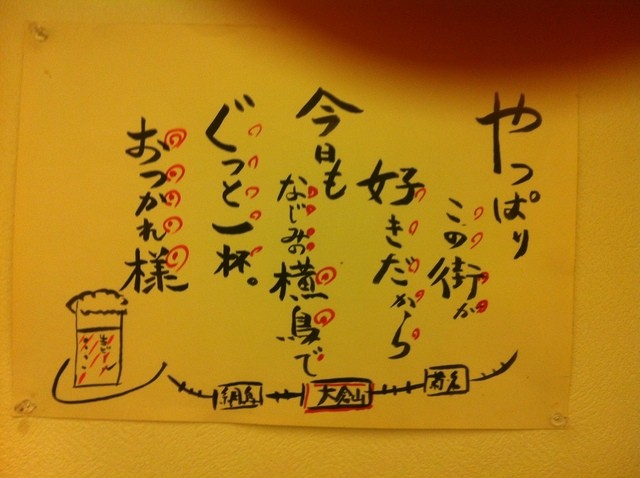 やっぱり
この街が
好きだから
今日も
なじみの横鳥で
ぐっと一杯。
おつかれ様
生ビール
綱島
大倉山
菊名